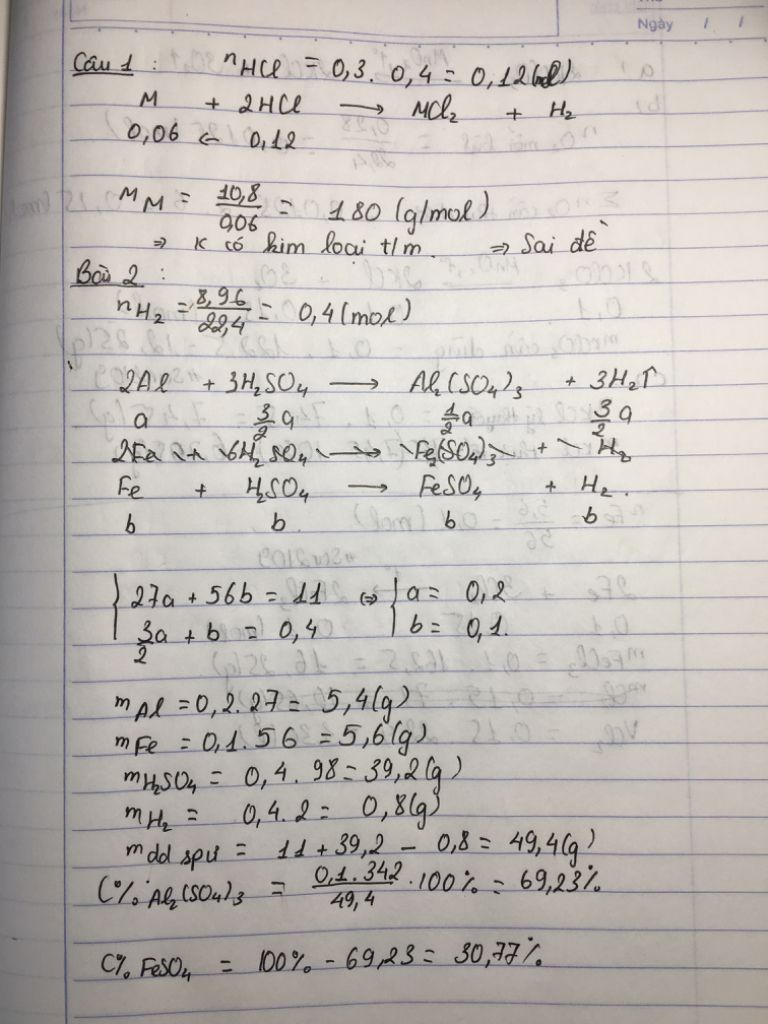 Ngày / /
Câu 1 : nHCl = 0,3. 0,4 = 0,12 (mol)
M + 2HCl → MCl₂ + H₂
0,06 ← 0,12
MM = 10,8/0,06 = 180 (g/mol)
⇒ K có kim loại t/m. ⇒ Sai đề
Bài 2 :
nH₂ = 8,96/22,4 = 0,4 (mol)
2Al + 3H₂SO₄ → Al₂(SO₄)₃ + 3H₂↑
a 3/2a 1/2a 3/2a
2Fe + 6H₂SO₄ → Fe₂(SO₄)₃ + H₂
Fe + H₂SO₄ → FeSO₄ + H₂.
b b. b b
{27a + 56b = 11 ⇔ {a = 0,2
3/2a + b = 0,4 b = 0,1.
mAl = 0,2.27 = 5,4(g)
mFe = 0,1.56 = 5,6(g)
mH₂SO₄ = 0,4. 98 = 39,2(g)
mH₂ = 0,4.2 = 0,8(g)
mdd spư = 11 + 39,2 - 0,8 = 49,4(g)
C% Al₂(SO₄)₃ = 0,1.342/49,4 .100% = 69,23%
C% FeSO₄ = 100% - 69,23 = 30,77%